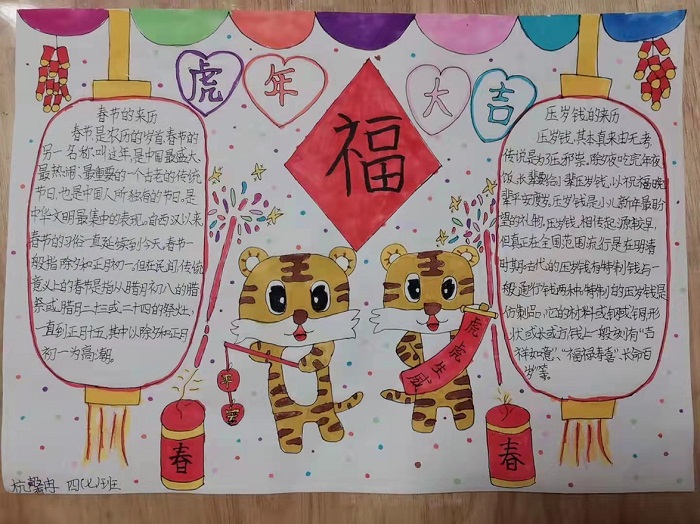 虎年大吉
福
春节的来历
春节是农历的岁首,春节的
另一名称,叫过年,是中国最盛大、
最热闹、最重要的一个古老的传统
节日,也是中国人所独有的节日,是
中华文明最集中的表现。自西汉以来
春节的习俗一直延续到今天。春节一
般指除夕和正月初一。但在民间,传统
意义上的春节是指从腊月初八的腊
祭或腊月二十三或二十四的祭灶,
一直到正月十五,其中以除夕和正月
初一为高潮。
压岁钱的来历
压岁钱,其本真来由无考,
传说是为压邪祟,除夕夜吃完年夜
饭,长辈要给小辈压岁钱,以祝福晚
辈平安度岁。压岁钱是小儿新年最盼
望的礼物。压岁钱,相传起源较早,
但真正在全国范围流行是在明清
时期。古代的压岁钱有特制钱与一
般通行钱两种。特制的压岁钱是
仿制品,它的材料或铜或铁,形
状或长或方,钱上一般刻有"吉
祥如意"、"福禄寿喜"、长命百
岁等。
虎虎生威
春
春
四(七)班